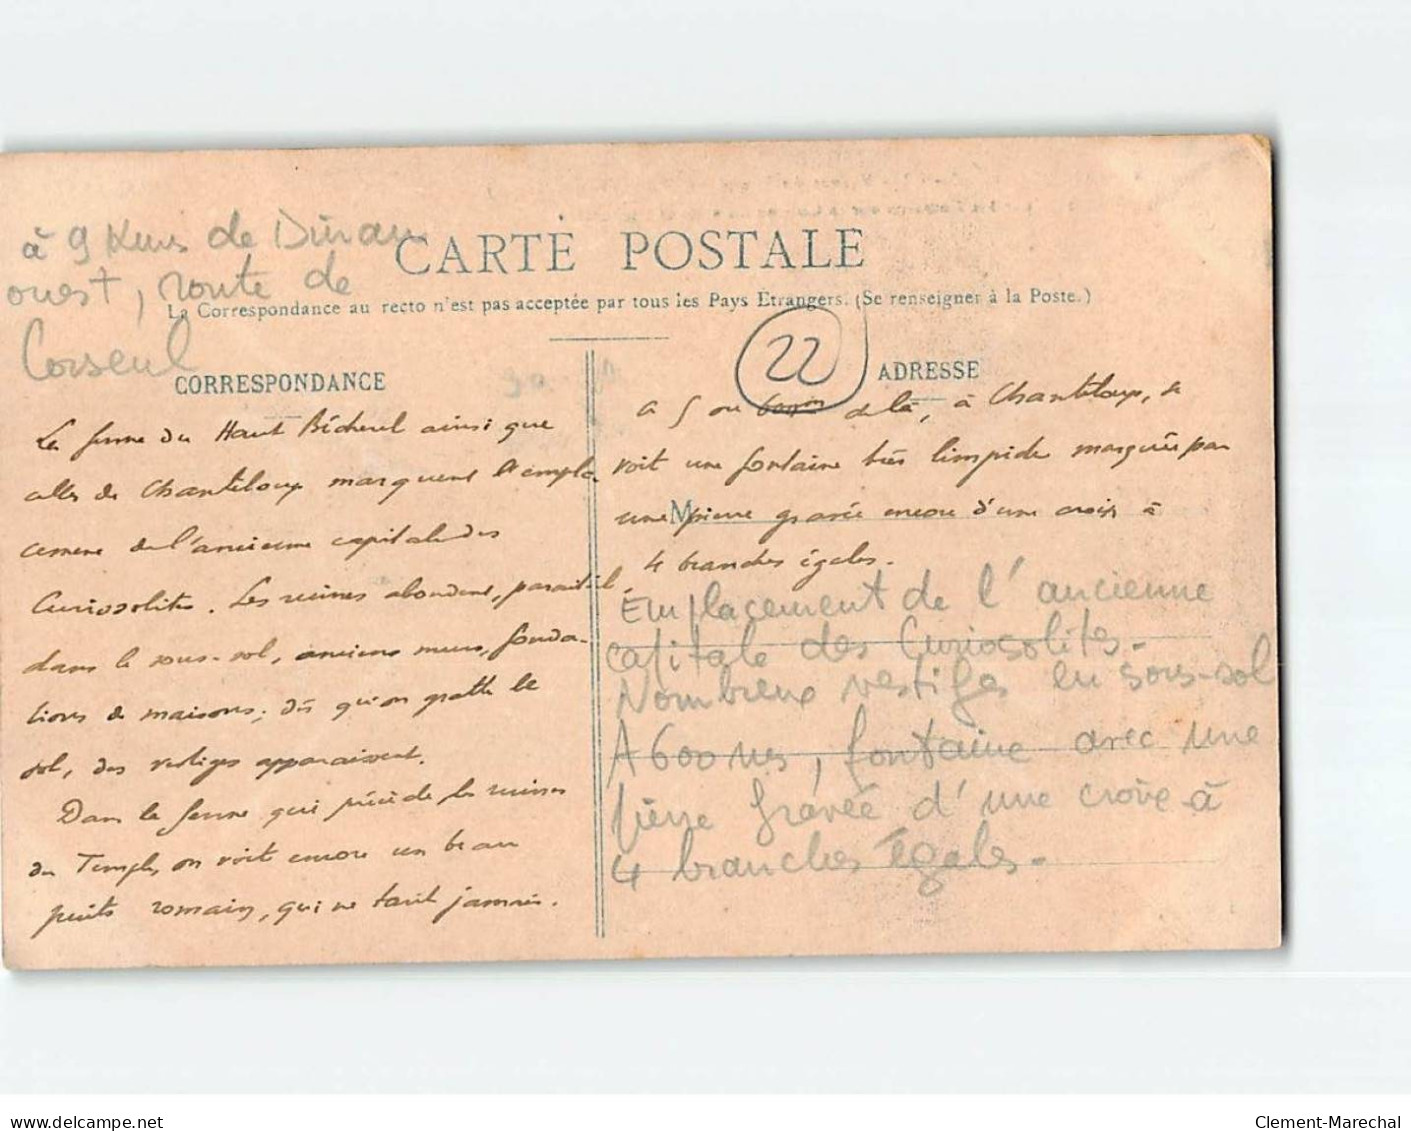 à 9 Kms de Dinan
ouest, route de
Corseul
CARTE POSTALE
La Correspondance au recto n'est pas acceptée par tous les Pays Etrangers. (Se renseigner à la Poste.)
22
CORRESPONDANCE
ADRESSE
La ferme du Haut Bécherel ainsi que
celles de Chanteloup marquent l'empla-
cement de l'ancienne capitale des
Curiosolites. Les ruines abondent, paraît-il,
dans le sous-sol, anciens murs, fonda-
tions de maisons; dès qu'on gratte le
sol, des vestiges apparaissent.
Dans la ferme qui précède les ruines
du Temple, on voit encore un beau
puits romain, qui ne tarit jamais.
a 5 ou 600m de là, à Chanteloup, se
voit une fontaine très limpide marquée par
une pierre gravée encore d'une croix à
4 branches égales.
M
Emplacement de l'ancienne
capitale des Curiosolites.
Nombreux vestiges en sous-sol
A 600 ms, fontaine avec une
pierre gravée d'une croix à
4 branches égales.
www.delcampe.net
Clement-Marechal